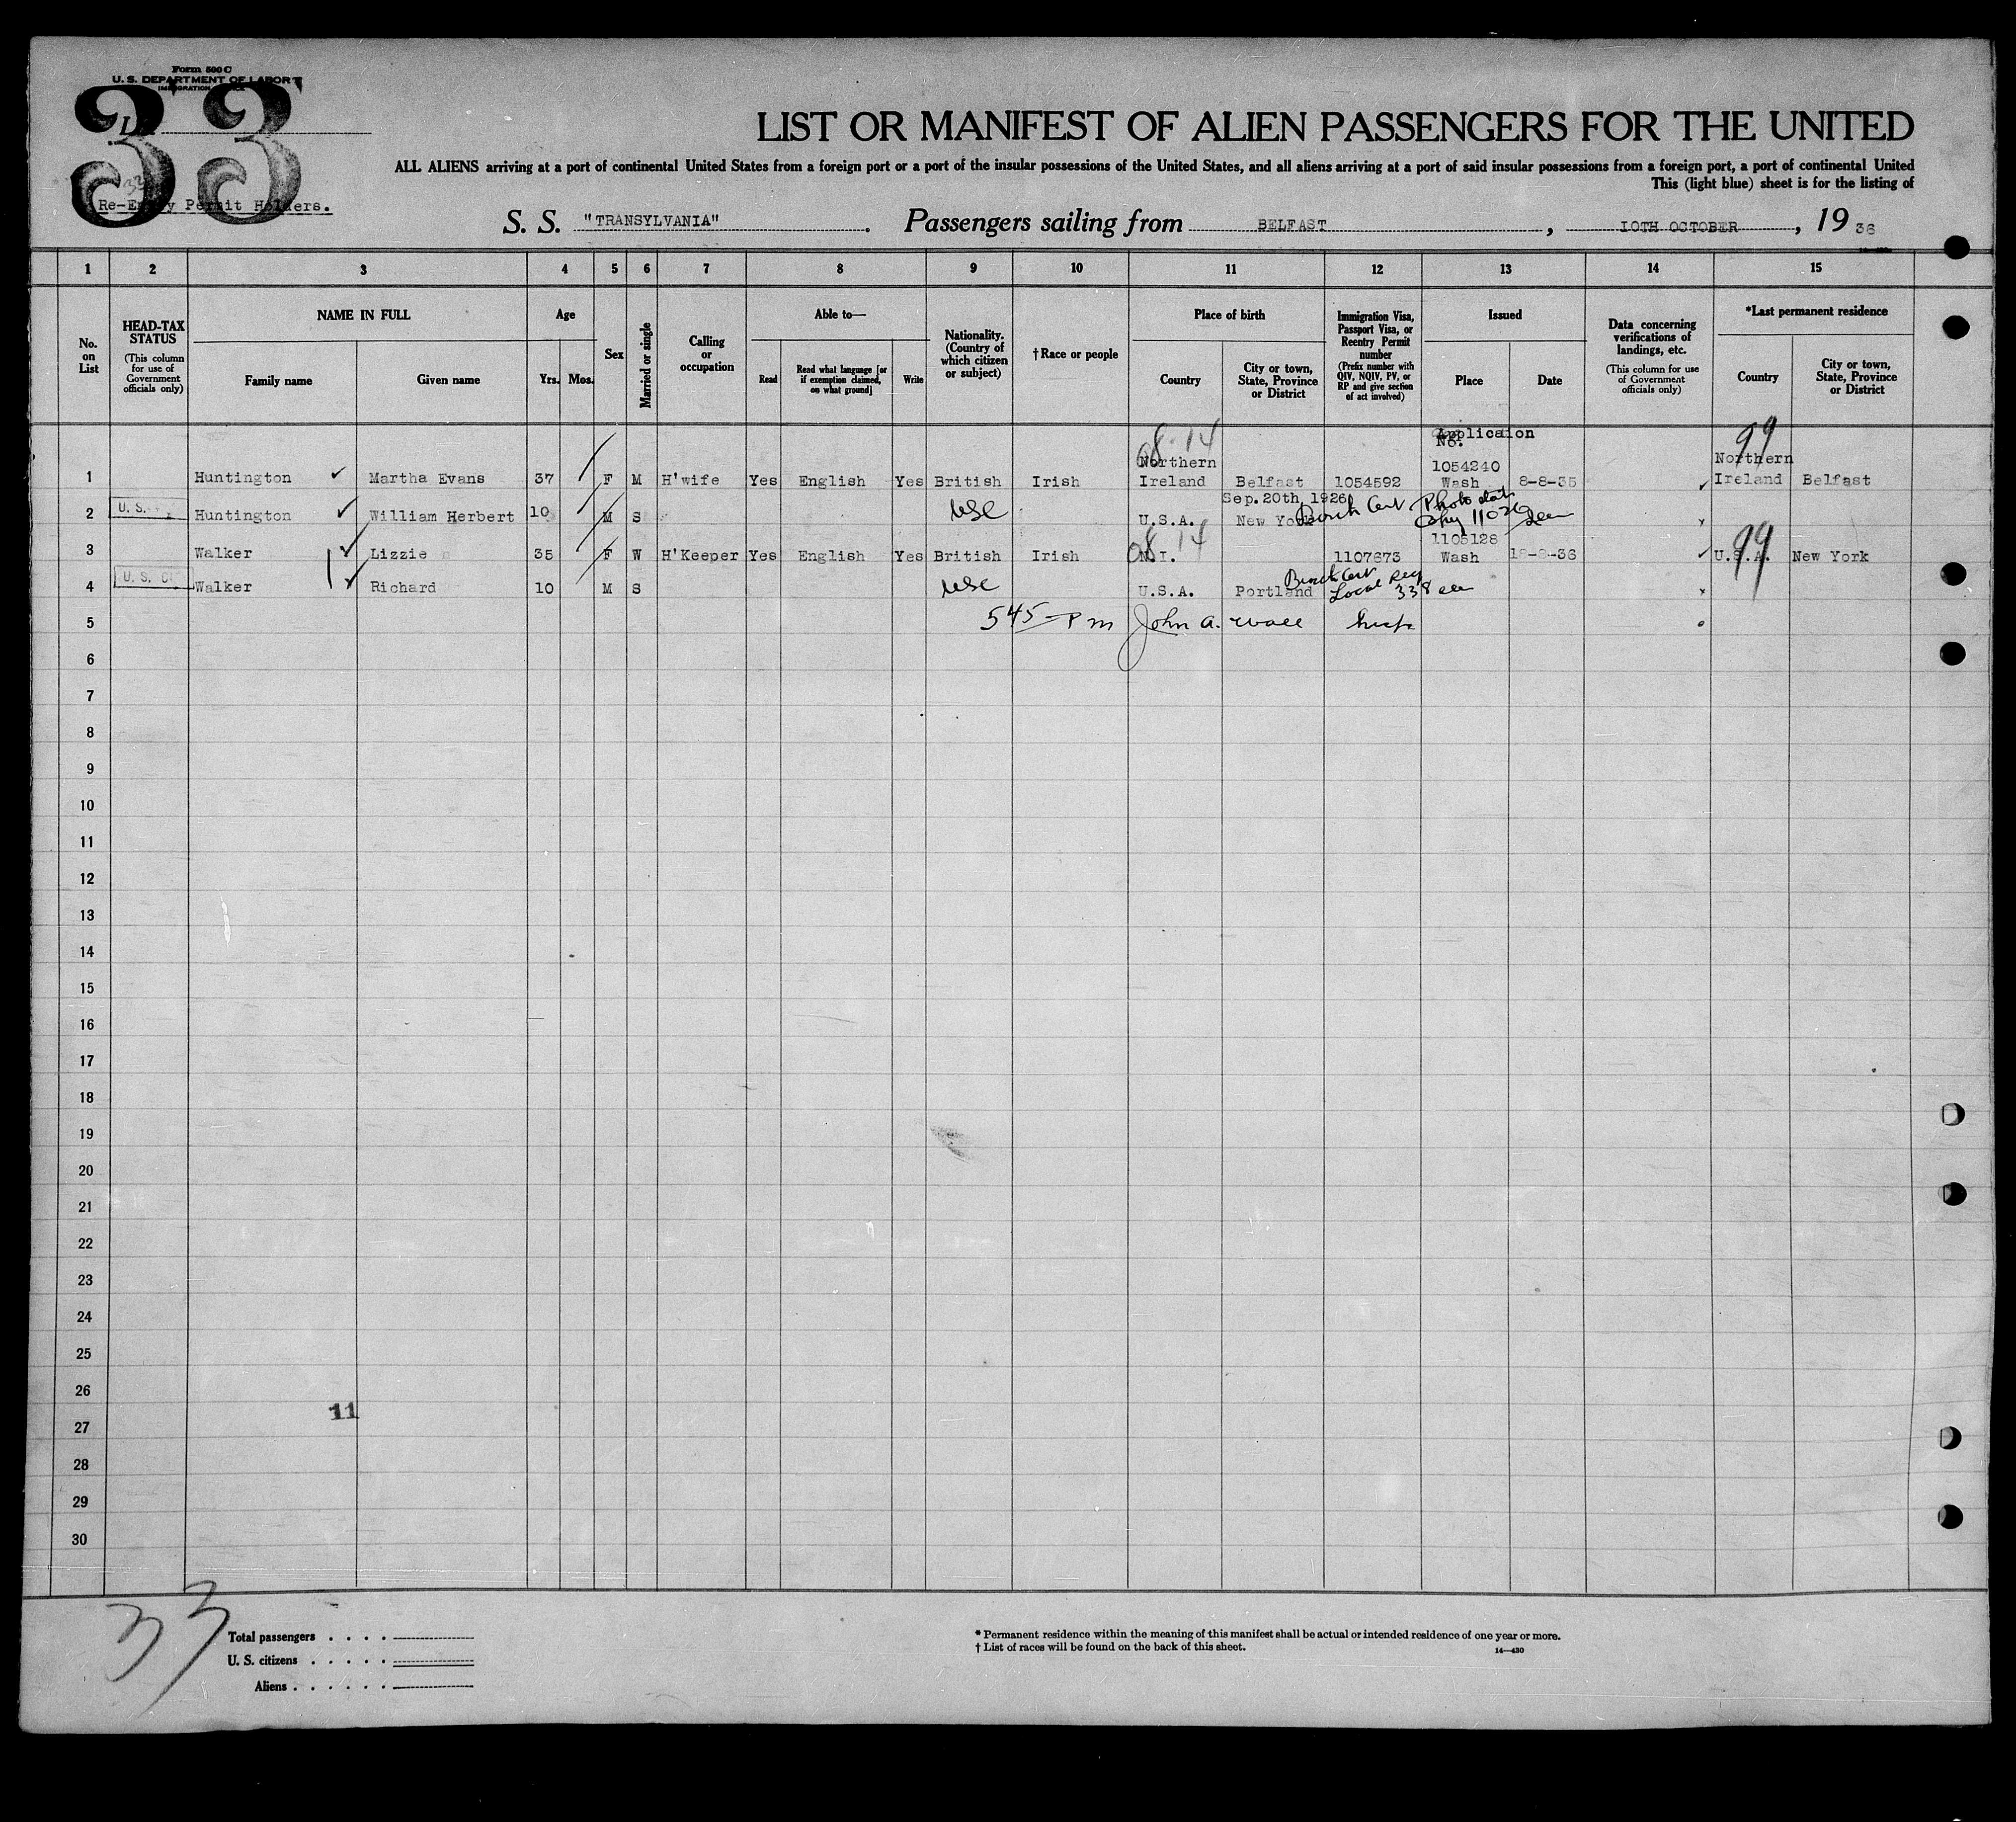 Form 500 C
U. S. DEPARTMENT OF LABOR
IMMIGRATION SERVICE
33
Re-Entry Permit Holders.
LIST OR MANIFEST OF ALIEN PASSENGERS FOR THE UNITED
ALL ALIENS arriving at a port of continental United States from a foreign port or a port of the insular possessions of the United States, and all aliens arriving at a port of said insular possessions from a foreign port, a port of continental United
This (light blue) sheet is for the listing of
S. S. "TRANSYLVANIA". Passengers sailing from BELFAST, 10TH OCTOBER, 19 36
1 2 3 4 5 6 7 8 9 10 11 12 13 14 15
No. on List
HEAD-TAX STATUS (This column for use of Government officials only)
NAME IN FULL
Family name Given name
Age
Yrs. Mos.
Sex
Married or single
Calling or occupation
Able to—
Read Read what language [or if exemption claimed, on what ground] Write
Nationality. (Country of which citizen or subject)
†Race or people
Place of birth
Country City or town, State, Province or District
Immigration Visa, Passport Visa, or Reentry Permit number (Prefix number with QIV, NQIV, PV, or RP and give section of act involved)
Issued
Place Date
Data concerning verifications of landings, etc. (This column for use of Government officials only)
*Last permanent residence
Country City or town, State, Province or District
08-14 Applicaion No. 99
Northern 1054240 Northern
1 Huntington Martha Evans 37 F M H'wife Yes English Yes British Irish Ireland Belfast 1054592 Wash 8-8-35 Ireland Belfast
Sep. 20th, 1926
2 U. S. Huntington William Herbert 10 M S USC U.S.A. New York Birth Cert Photostat Copy 11026 seen
08 14 1105128 99
3 Walker Lizzie 35 F W H'Keeper Yes English Yes British Irish N.I. 1107673 Wash 36 U.S.A. New York
4 U. S. Walker Richard 10 M S USC U.S.A. Portland Birth Cert Local Reg 338
5 545 Pm John A. Wall Insp.
6
7
8
9
10
11
12
13
14
15
16
17
18
19
20
21
22
23
24
25
26
11
27
28
29
30
33
Total passengers
U. S. citizens
Aliens
* Permanent residence within the meaning of this manifest shall be actual or intended residence of one year or more.
† List of races will be found on the back of this sheet.
14—430